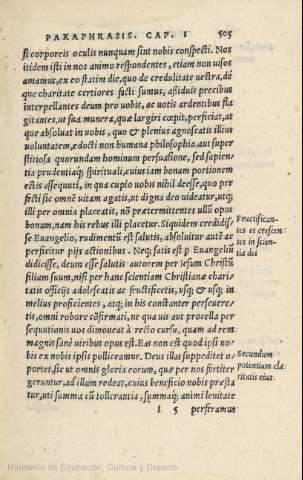 PARAPHRASIS. CAP. I 505
si corporeis oculis nunquam sint nobis conspecti. Nos
itidem isti in nos animo respondentes, etiam non uisos
amamus, ex eo statim die, quo de credulitate uestra, dé
que charitate certiores facti sumus, assiduis precibus
interpellantes deum pro uobis, ac uotis ardentibus fla
gitantes, ut sua munera, quæ largiri cœpit, perficiat, at
que absoluat in uobis, quo & plenius agnoscatis illius
uoluntatem, edocti non humana philosophia, aut super
stitiosa quorundam hominum persuasione, sed sapien
tia prudentiaq; spirituali, cuius iam bonam portionem
estis assequuti, in qua cupio uobis nihil deesse, quo per
fecti sic omnē uitam agatis, ut digna deo uideatur, utq;
illi per omnia placeatis, nō prætermittentes ullū opus
bonum, nam his rebus illi placetur. Siquidem credidis/
se Euangelio, rudimentū est salutis, absoluitur autē ac
perficitur pijs actionibus. Neq; satis est p Euangeliū
didicisse, deum esse salutis autorem per Iesum Christū
filium suum, nisi per hanc scientiam Christianæ chari/
tatis officijs adolescatis ac fructificetis, usq; & usq; in
melius proficientes, atq; in his constanter perseuere/
tis, omni robore cōfirmati, ne qua uis aut procella per
sequutionis uos dimoueat à recto cursu, quam ad rem
magnis sanè uiribus opus est. Eas non est quod ipsi no/
bis ex nobis ipsis polliceamur. Deus illas suppeditet o/
portet, sic ut omnis gloria eorum, quæ per nos fortiter
geruntur, ad illum redeat, cuius beneficio nobis præsta
tur, uti summa cū tollerantia, summaq; animi lenitate
I 5 perferamus
Fructifican/
tes et crescen
tes in scien/
tia dei
Secundum
potentiam cla
ritatis eius.
Ministerio de Educación, Cultura y Deporte